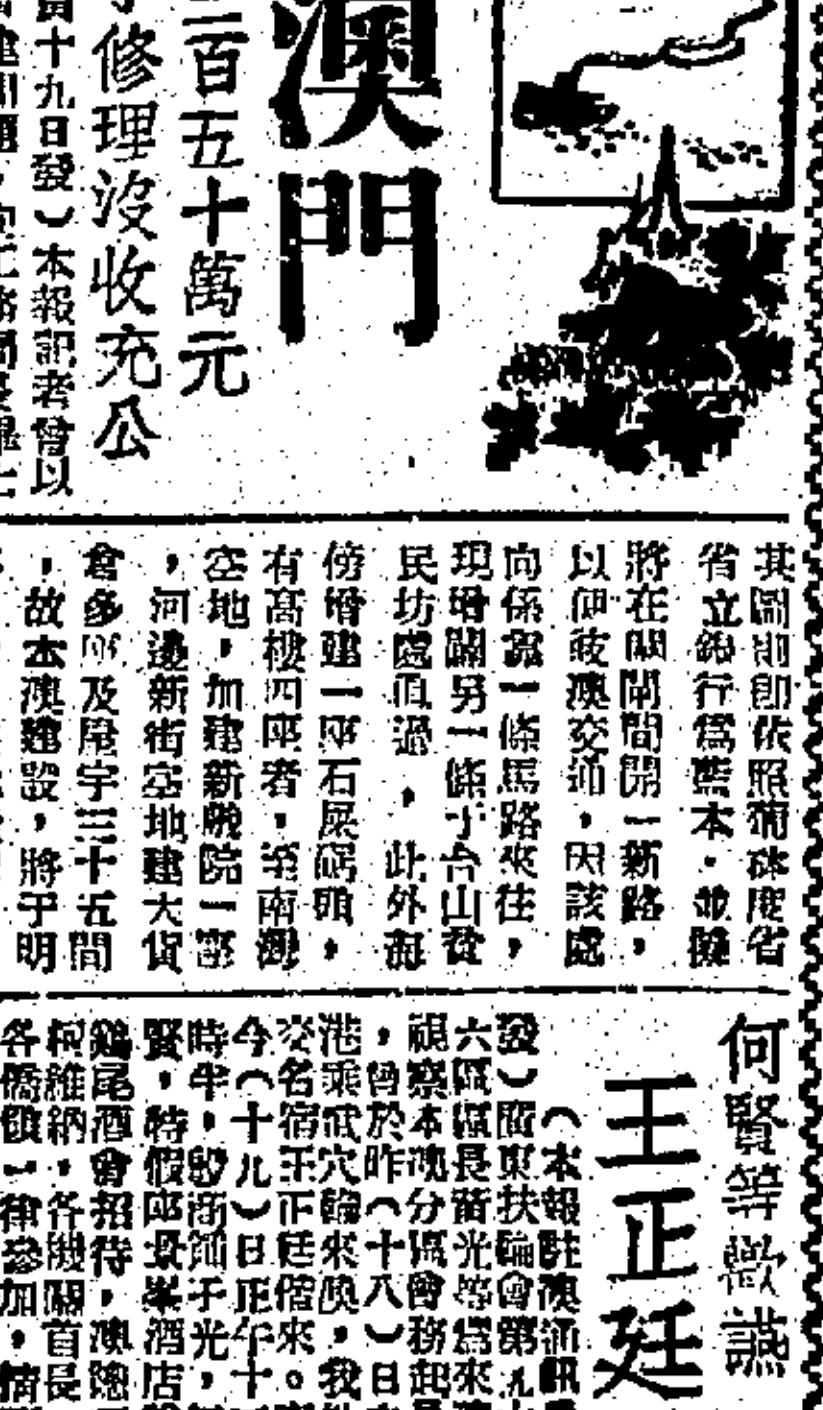 澳門
二百五十萬元
修理沒收充公
十九日發）本報記者曾以
其圖則即依照葡砵度省
省立銀行爲藍本．並擬
將在關閘間開一新路，
以便岐澳交通，因該處
向係靠一條馬路來往，
現增闢另一條于台山貧
民坊處直過，此外海
傍增建一座石屎碼頭，
有高樓四座者，至南灣
空地，加建新戲院一
，河邊新街空地建大貨
倉多所及屋宇三十五間
，故本澳建設，將于明
何賢等歡讌
王正廷
（本報駐澳通訊
發）廣東扶輪會第
六區區長黃光等爲來
視察本澳分區會務起
，曾於昨（十八）日
港乘武穴輪來澳，我
交名宿王正廷偕來。
今（十九）日正午十
時半，殷商鍾子光，
賢，特假座景峯酒店
鷄尾酒會招待，澳總
柯維納，各機關首長
各僑領一律參加，情